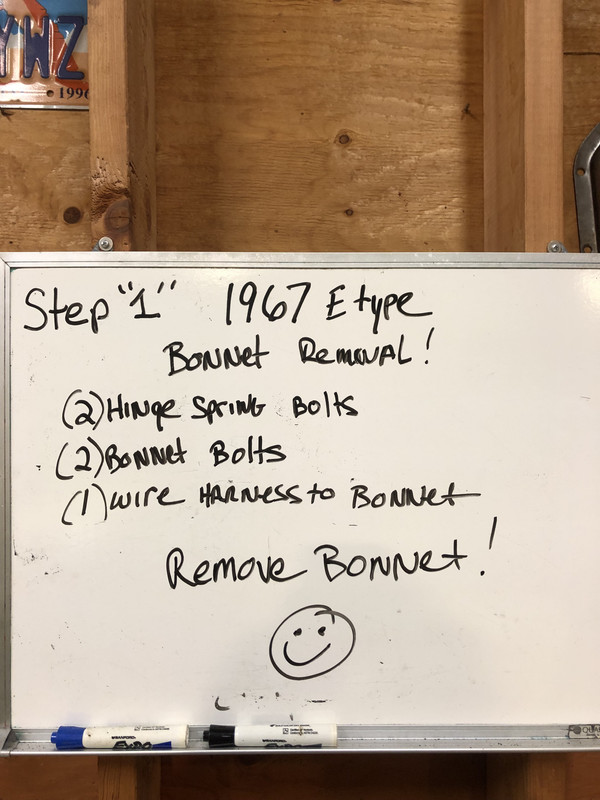 YWZ
1996
Step "1" 1967 E type
Bonnet Removal!
(2) Hinge Spring Bolts
(2) Bonnet Bolts
(1) wire Harness to Bonnet
Remove Bonnet!
EXPO
EXPO